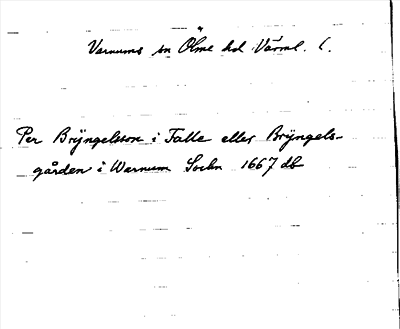 Varnums sn Ölme hd Värml. l.
Per Bryngelsson i Talle eller Bryngels-
gården i Warnum Sochn 1667 db